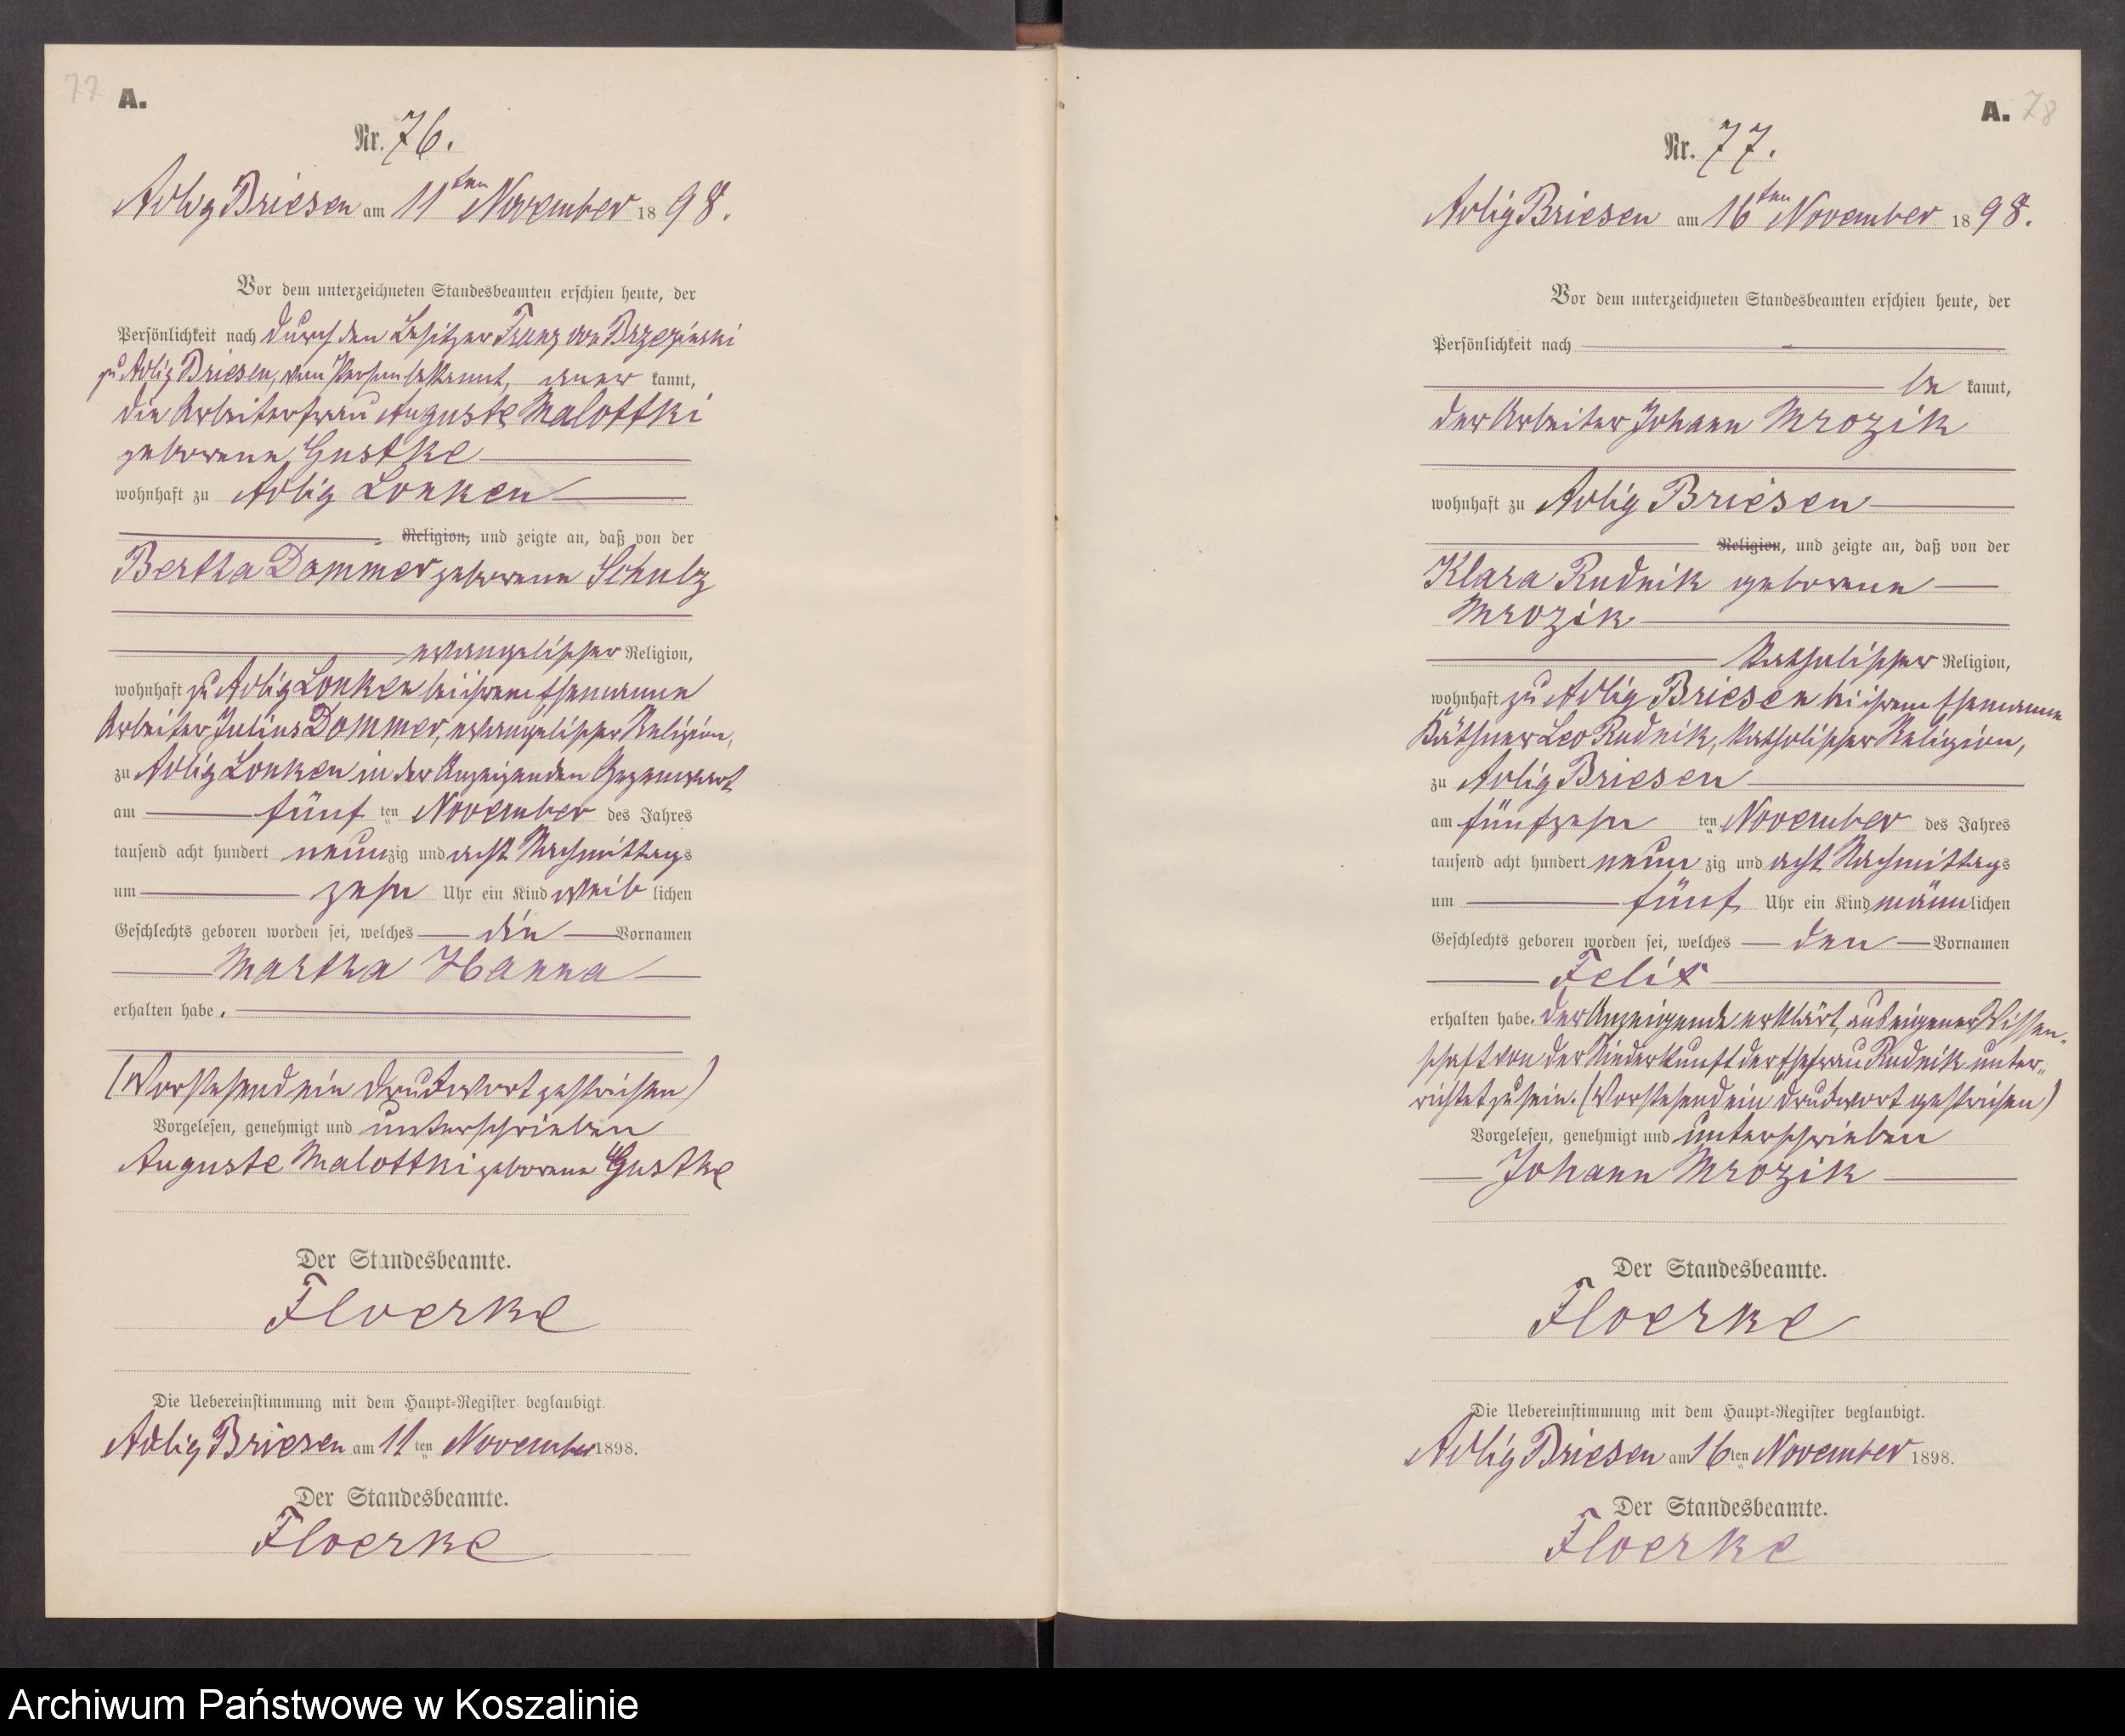 77
A.
Nr. 76.
Adlig Briesen am 11ten November 1898.
Vor dem unterzeichneten Standesbeamten erschien heute, der
Persönlichkeit nach durch den Besitzer Franz von Brzezinski
zu Adlig Briesen, von Person bekannt, aner kannt,
die Arbeiterfrau Auguste Malottki
geborene Gustke
wohnhaft zu Adlig Lonken
Religion, und zeigte an, daß von der
Bertha Dommer geborene Schulz
evangelischer Religion,
wohnhaft zu Adlig Lonken bei ihrem Ehemanne
Arbeiter Julius Dommer, evangelischer Religion,
zu Adlig Lonken in der Anzeigenden Gegenwart
am fünf ten November des Jahres
tausend acht hundert neunzig und acht Nachmittags
um zehn Uhr ein Kind weib lichen
Geschlechts geboren worden sei, welches die Vornamen
Martha Hanna
erhalten habe.
(Vorstehend ein Druckwort gestrichen)
Vorgelesen, genehmigt und unterschrieben
Auguste Malottki geborene Gustke
Der Standesbeamte.
Floerke
Die Uebereinstimmung mit dem Haupt-Register beglaubigt.
Adlig Briesen am 11ten November 1898.
Der Standesbeamte.
Floerke
A. 78
Nr. 77.
Adlig Briesen am 16ten November 1898.
Vor dem unterzeichneten Standesbeamten erschien heute, der
Persönlichkeit nach
be kannt,
der Arbeiter Johann Mrozik
wohnhaft zu Adlig Briesen
Religion, und zeigte an, daß von der
Klara Rudnik geborene
Mrozik
katholischer Religion,
wohnhaft zu Adlig Briesen bei ihrem Ehemanne
Käthner Leo Rudnik, katholischer Religion,
zu Adlig Briesen
am fünfzehn ten November des Jahres
tausend acht hundert neun zig und acht Nachmittags
um fünf Uhr ein Kind männlichen
Geschlechts geboren worden sei, welches den Vornamen
Felix
erhalten habe. Der Anzeigende erklärt, aus eigener Wissen-
schaft von der Niederkunft der Ehefrau Rudnik unter-
richtet zu sein. (Vorstehend ein Druckwort gestrichen)
Vorgelesen, genehmigt und unterschrieben
Johann Mrozik
Der Standesbeamte.
Floerke
Die Uebereinstimmung mit dem Haupt-Register beglaubigt.
Adlig Briesen am 16ten November 1898.
Der Standesbeamte.
Floerke
Archiwum Państwowe w Koszalinie